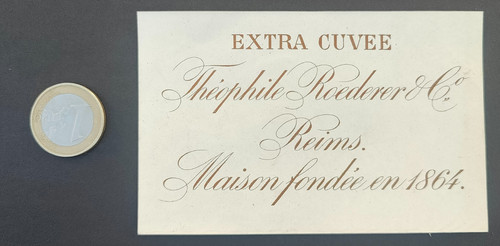 EXTRA CUVEE
Théophile Roederer & Cº.
Reims.
Maison fondée en 1864.
1